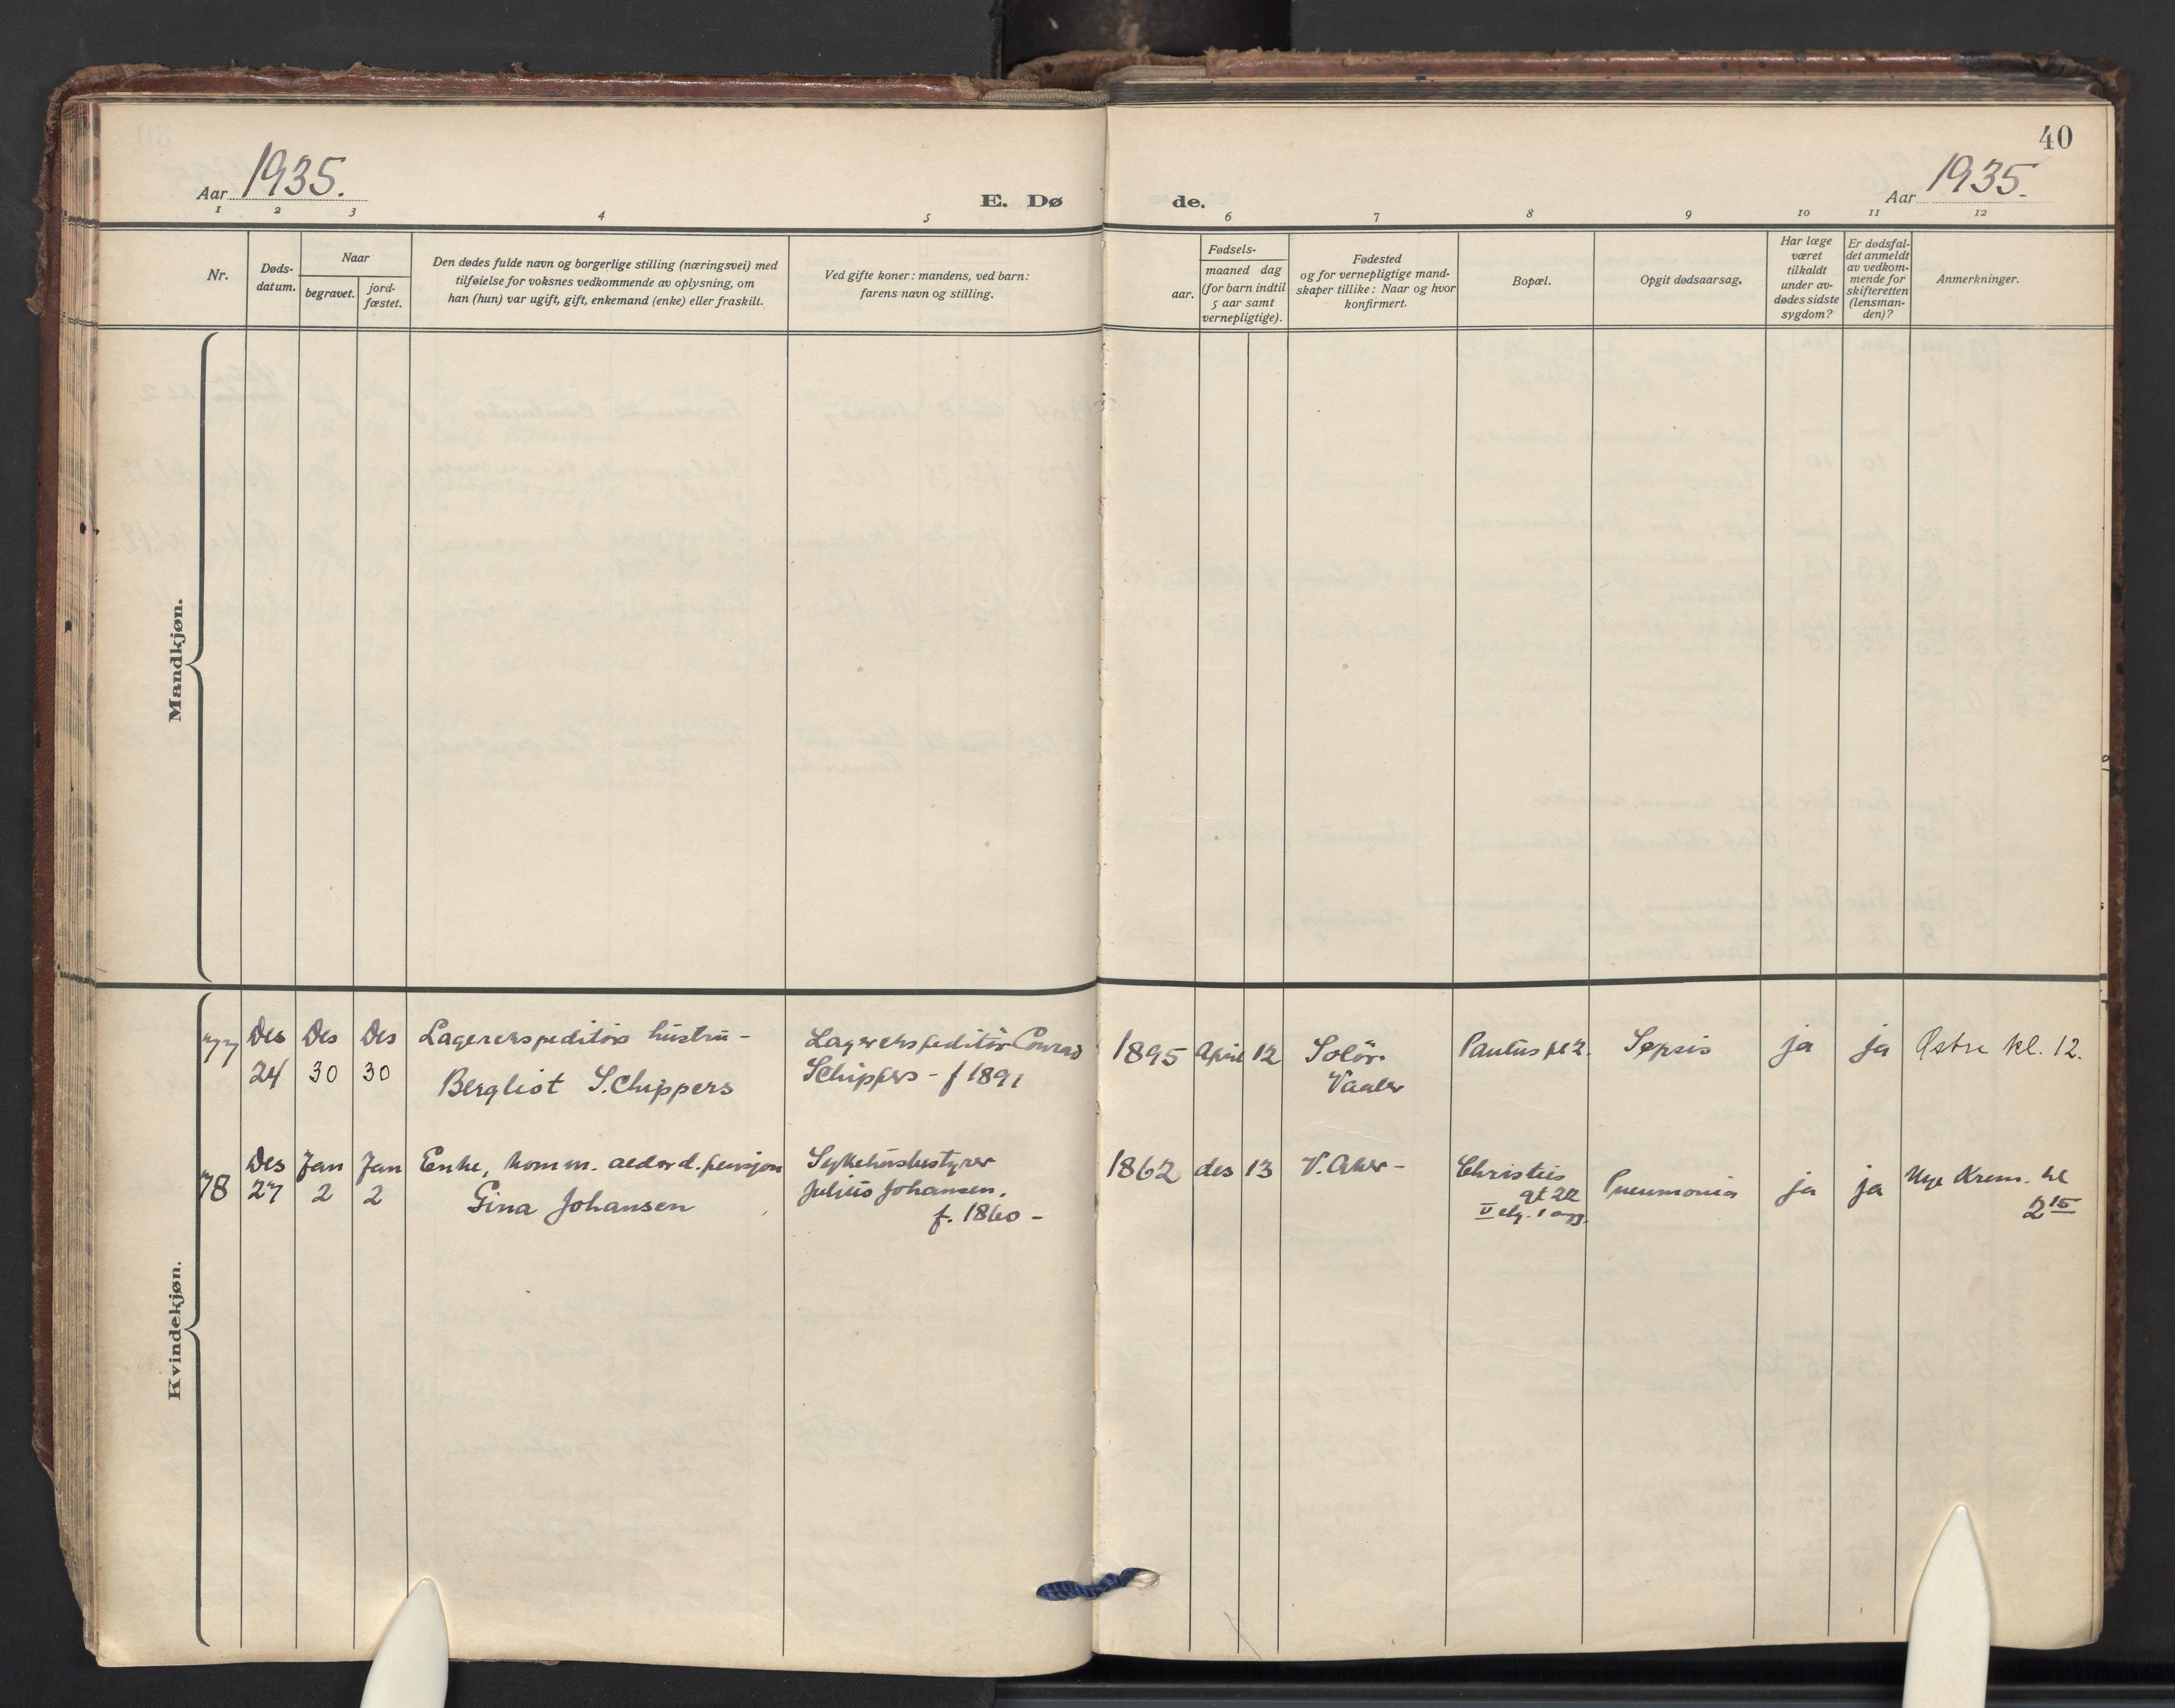 40
Aar 1935.
E. Dø
de.
Aar 1935.
1 2 3 4 5 6 7 8 9 10 11 12
Nr.
Døds-
datum.
Naar
begravet.
jord-
fæstet.
Den dødes fulde navn og borgerlige stilling (næringsvei) med
tilføielse for voksnes vedkommende av oplysning, om
han (hun) var ugift, gift, enkemand (enke) eller fraskilt.
Ved gifte koner: mandens, ved barn:
farens navn og stilling.
Fødsels-
aar.
maaned dag
(for barn indtil
5 aar samt
vernepligtige).
Fødested
og for vernepligtige mand-
skaper tillike: Naar og hvor
konfirmert.
Bopæl.
Opgit dødsaarsag.
Har læge
været
tilkaldt
under av-
dødes sidste
sygdom?
Er dødsfal-
det anmeldt
av vedkom-
mende for
skifteretten
(lensman-
den)?
Anmerkninger.
Mandkjøn.
Kvindekjøn.
77 Des Des Des Lagerekspeditørs hustru - Lagerekspeditør Conrad 1895 April 12 Solør. Sepsis ja ja Østre kl. 12.
24 30 30 Bergliot Schippers Schippers - f 1891 Vaaler
78 Des Jan Jan Enke, komm. alderd. pensjon Sykehusbestyrer 1862 des 13 V. Aker - Christies Pneumonia ja ja Nye Krem. kl
27 2 2 Gina Johansen Julius Johansen. gt 22 2 15
f. 1860 - II